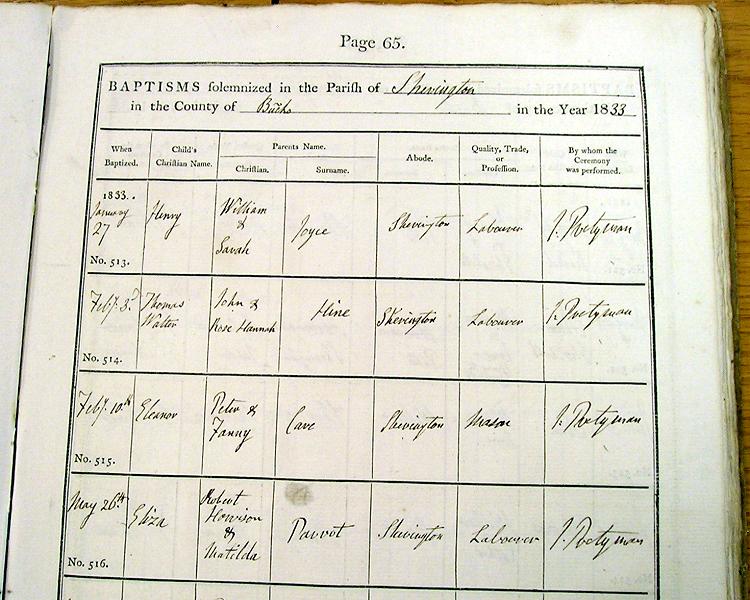 Page 65.
BAPTISMS solemnized in the Parish of Sherington
in the County of Bucks in the Year 1833
When Baptized. Child's Christian Name. Parents Name. Christian. Surname. Abode. Quality, Trade, or Profession. By whom the Ceremony was performed.
1833.
January 27
No. 513.
Henry
William
&
Sarah
Joyce
Sherington
Labourer
J. Pretyman
Feby. 3d
No. 514.
Thomas
Walter
John &
Rose Hannah
Hine
Sherington
Labourer
J. Pretyman
Feby. 10th
No. 515.
Eleanor
Peter &
Fanny
Cave
Sherington
Mason
J. Pretyman
May 26th
No. 516.
Eliza
Robert
Howison
&
Matilda
Parrot
Sherington
Labourer
J. Pretyman